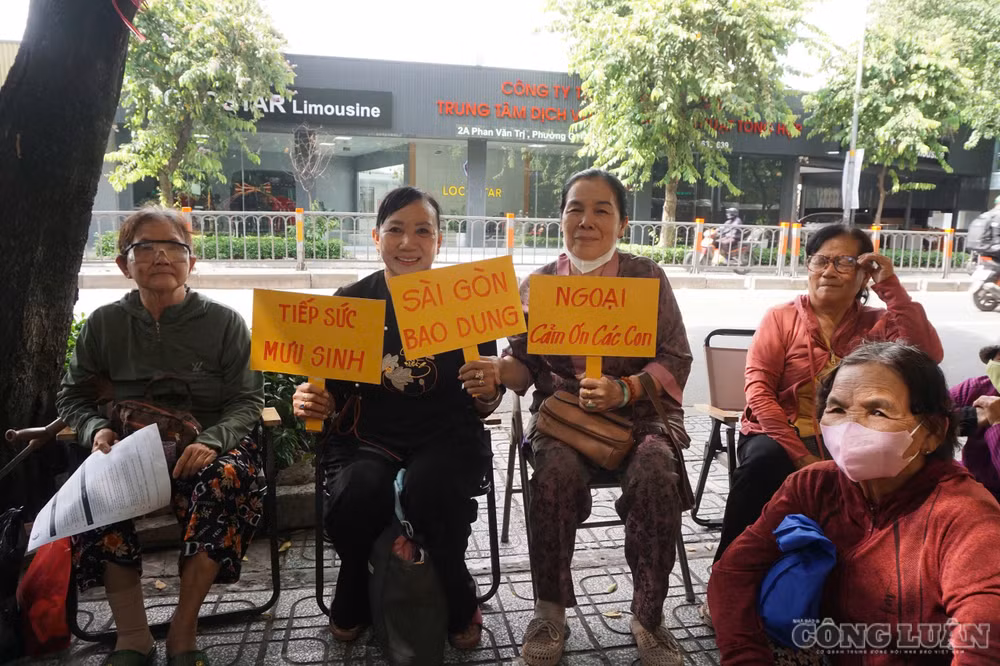 STAR Limousine
CÔNG TY T
TRUNG TÂM DỊCH V
TỔNG HỢP
2A Phan Văn Trị, Phường
LOC STAR
TIẾP SỨC
MƯU SINH
SÀI GÒN
BAO DUNG
NGOẠI
Cảm Ơn Các Con
CÔNG LUẬN